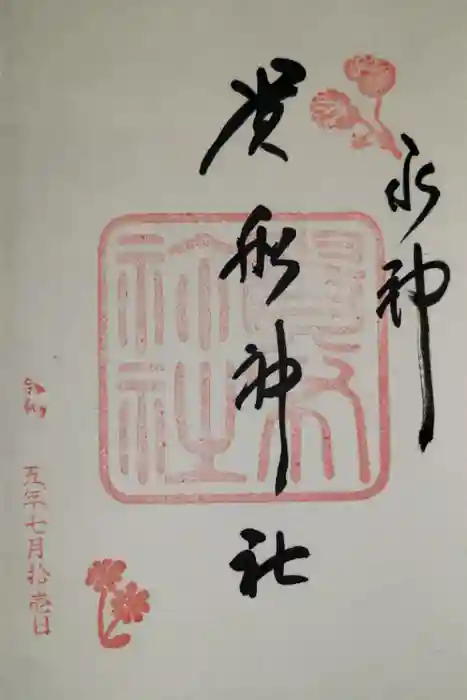 水神
貴船神社
神社
令和
五年七月拾壱日